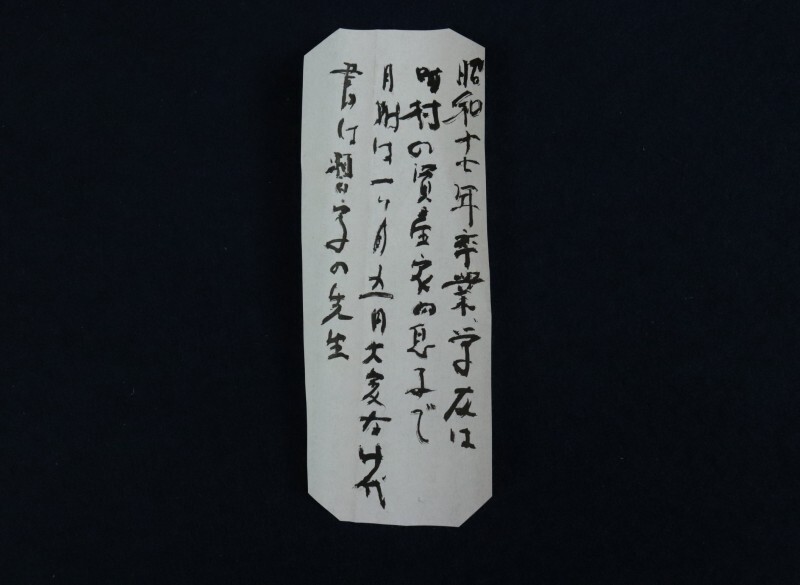 昭和十七年卒業、学友は
町村の資産家の息子で
月謝は一ヶ月五円大変な時代
書は習字の先生